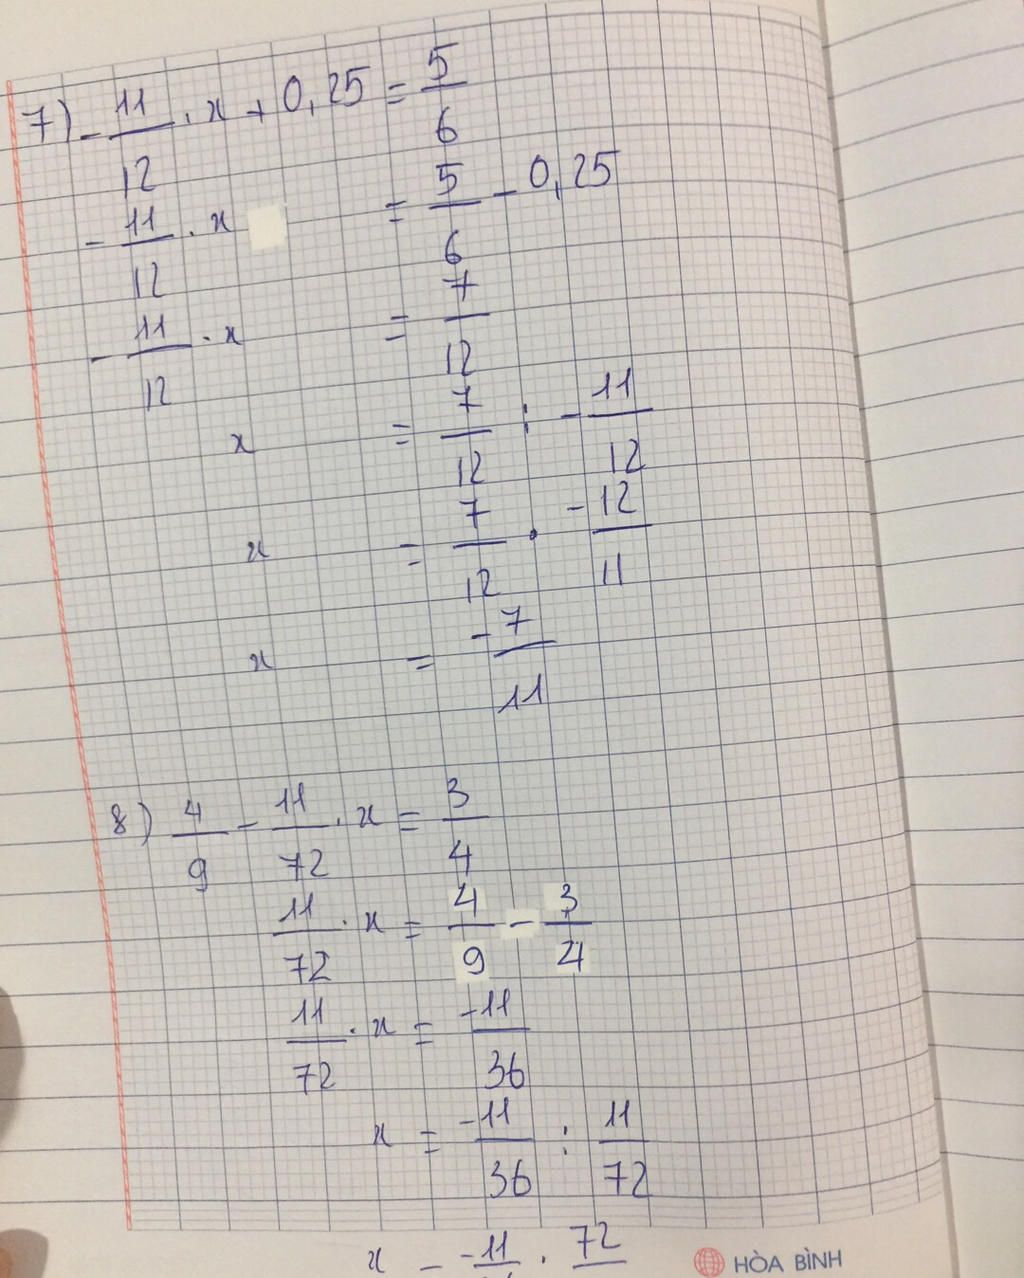 7) - 11/12 . x + 0,25 = 5/6
- 11/12 . x = 5/6 - 0,25
- 11/12 . x = 7/12
x = 7/12 : - 11/12
x = 7/12 . - 12/11
x = - 7/11
8) 4/9 - 11/72 . x = 3/4
11/72 . x = 4/9 - 3/4
11/72 . x = -11/36
x = -11/36 : 11/72
x = -11/ . 72/
HÒA BÌNH